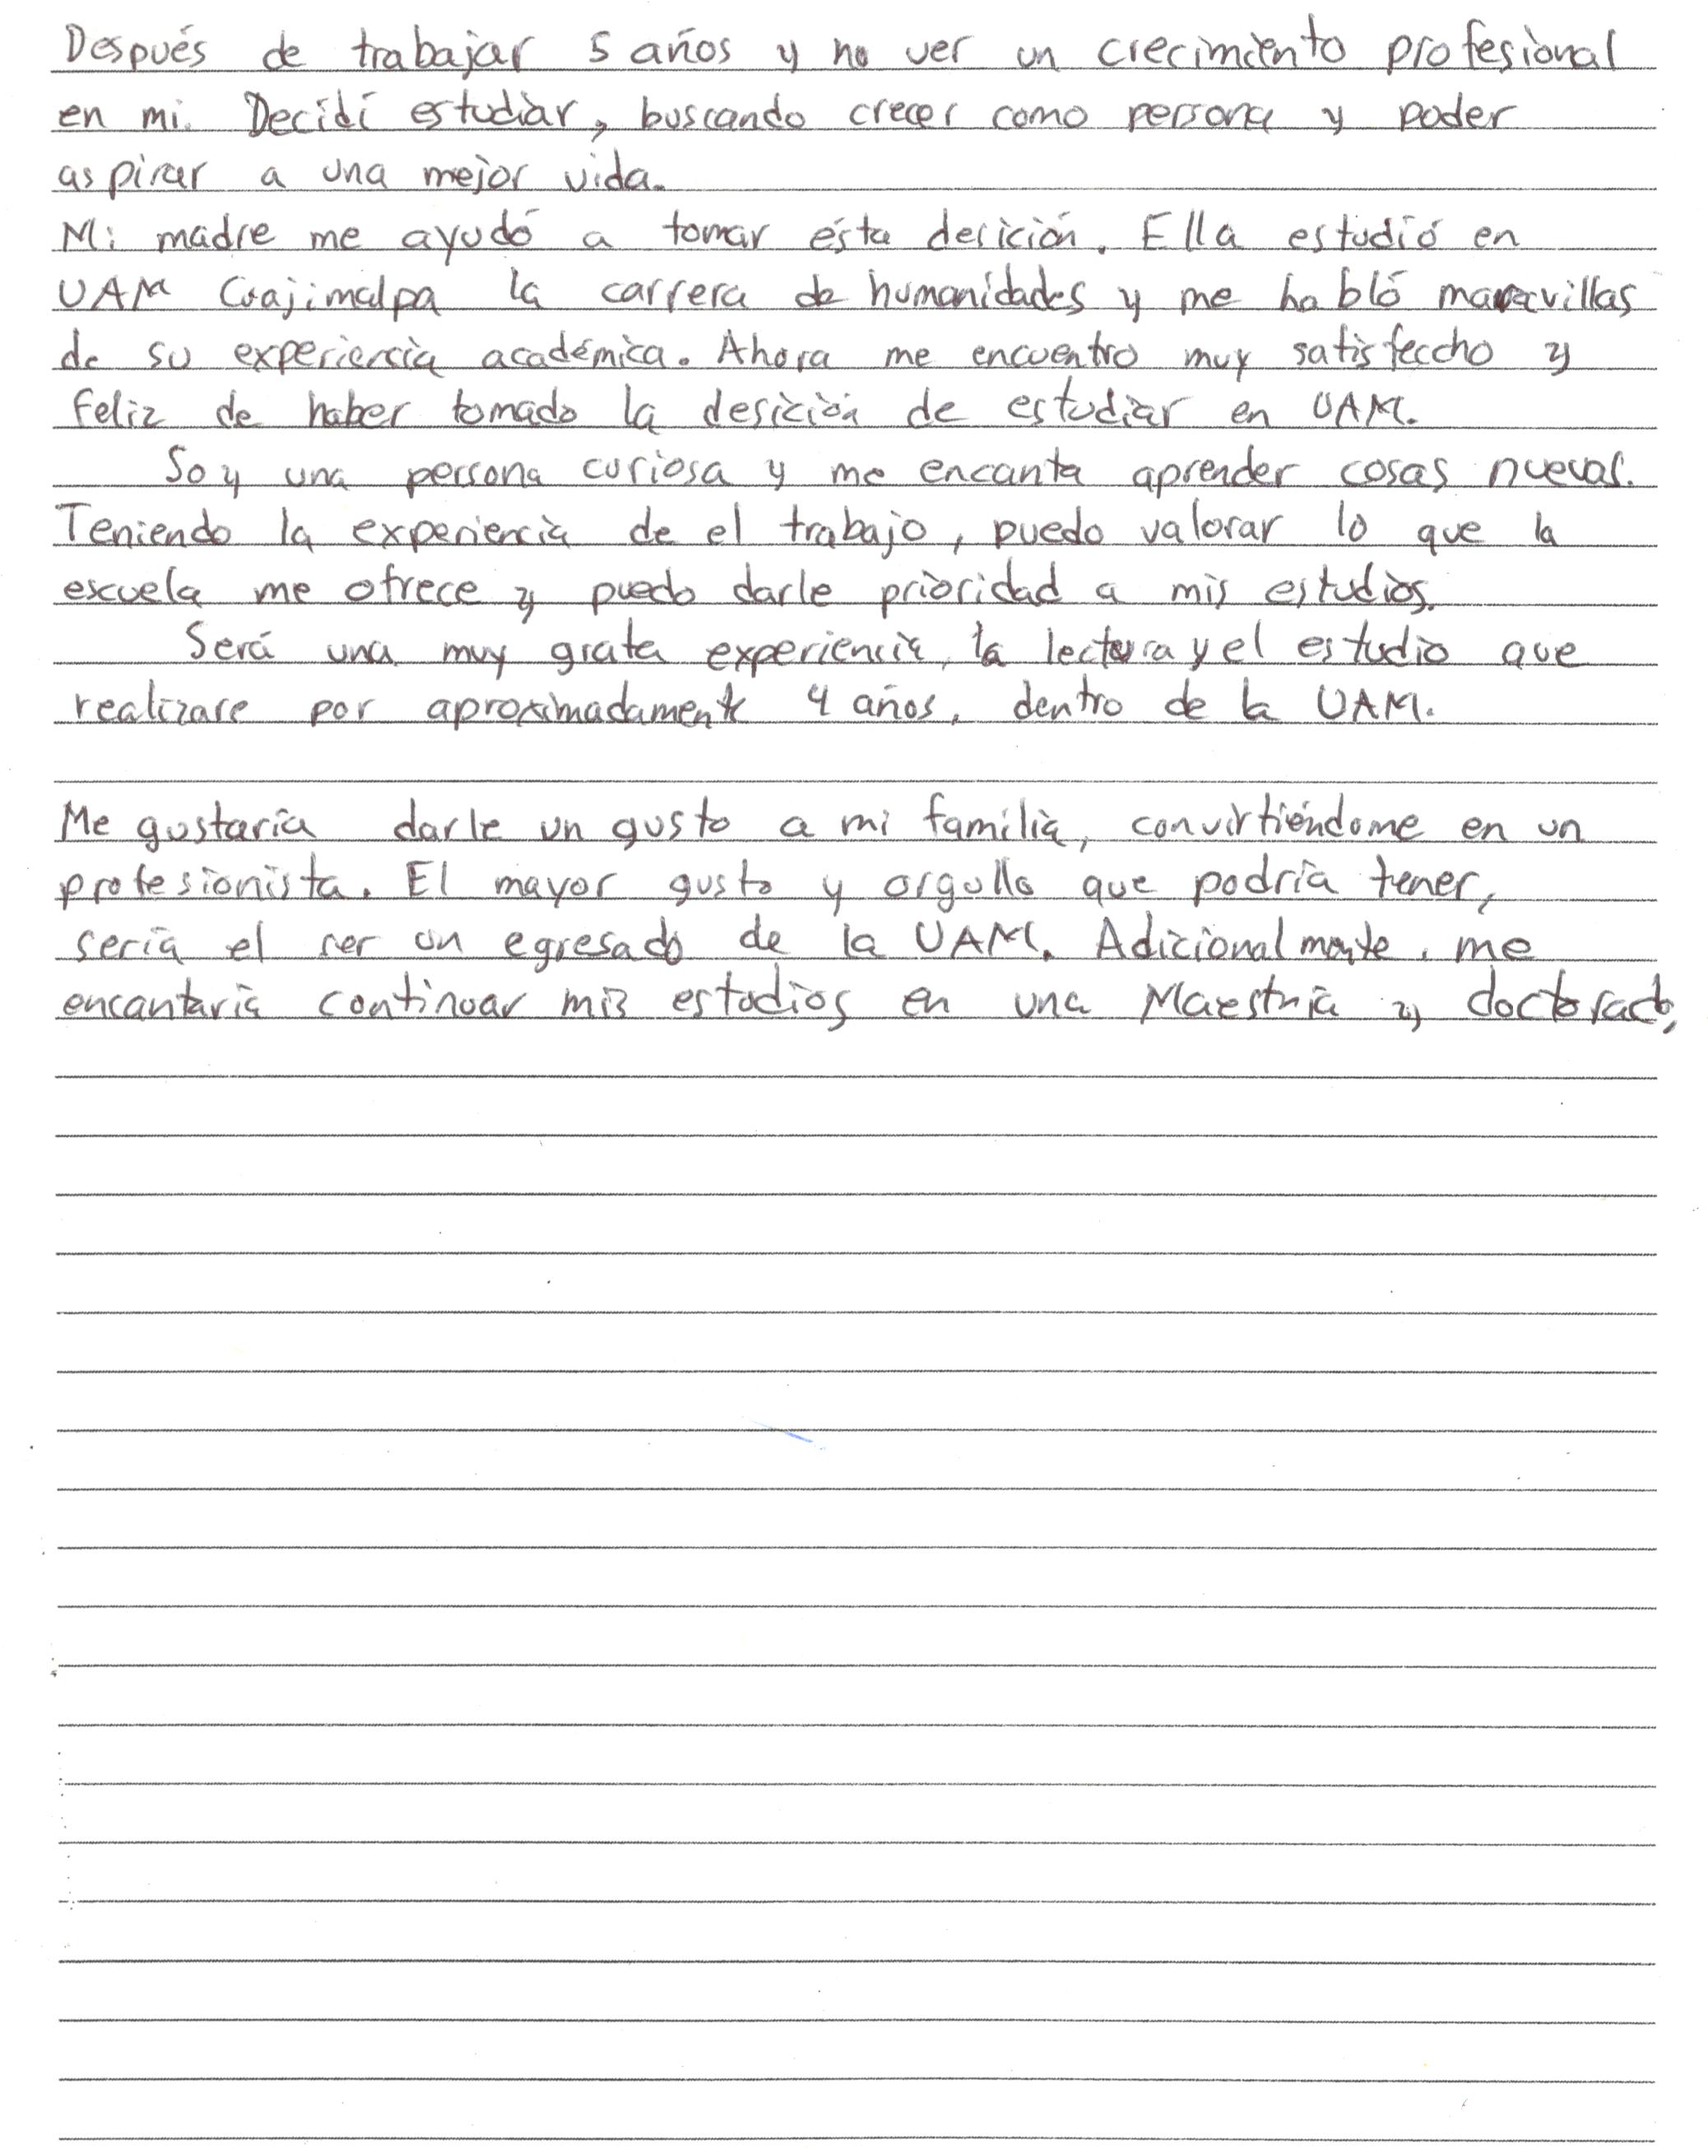 Después de trabajar 5 años y no ver un crecimiento profesional
en mi. Decidí estudiar, buscando crecer como persona y poder
aspirar a una mejor vida.
Mi madre me ayudó a tomar ésta desición. Ella estudió en
UAM Cuajimalpa la carrera de humanidades y me habló maravillas
de su experiencia académica. Ahora me encuentro muy satisfeccho y
feliz de haber tomado la desición de estudiar en UAM.
Soy una persona curiosa y me encanta aprender cosas nuevas.
Teniendo la experiencia de el trabajo, puedo valorar lo que la
escuela me ofrece y puedo darle prioridad a mis estudios.
Será una muy grata experiencia, la lectura y el estudio que
realizare por aproximadamente 4 años, dentro de la UAM.
Me gustaría darle un gusto a mi familia, convirtiéndome en un
profesionista. El mayor gusto y orgullo que podría tener,
sería el ser un egresado de la UAM. Adicionalmente, me
encantaría continuar mis estudios en una Maestría y doctorado,